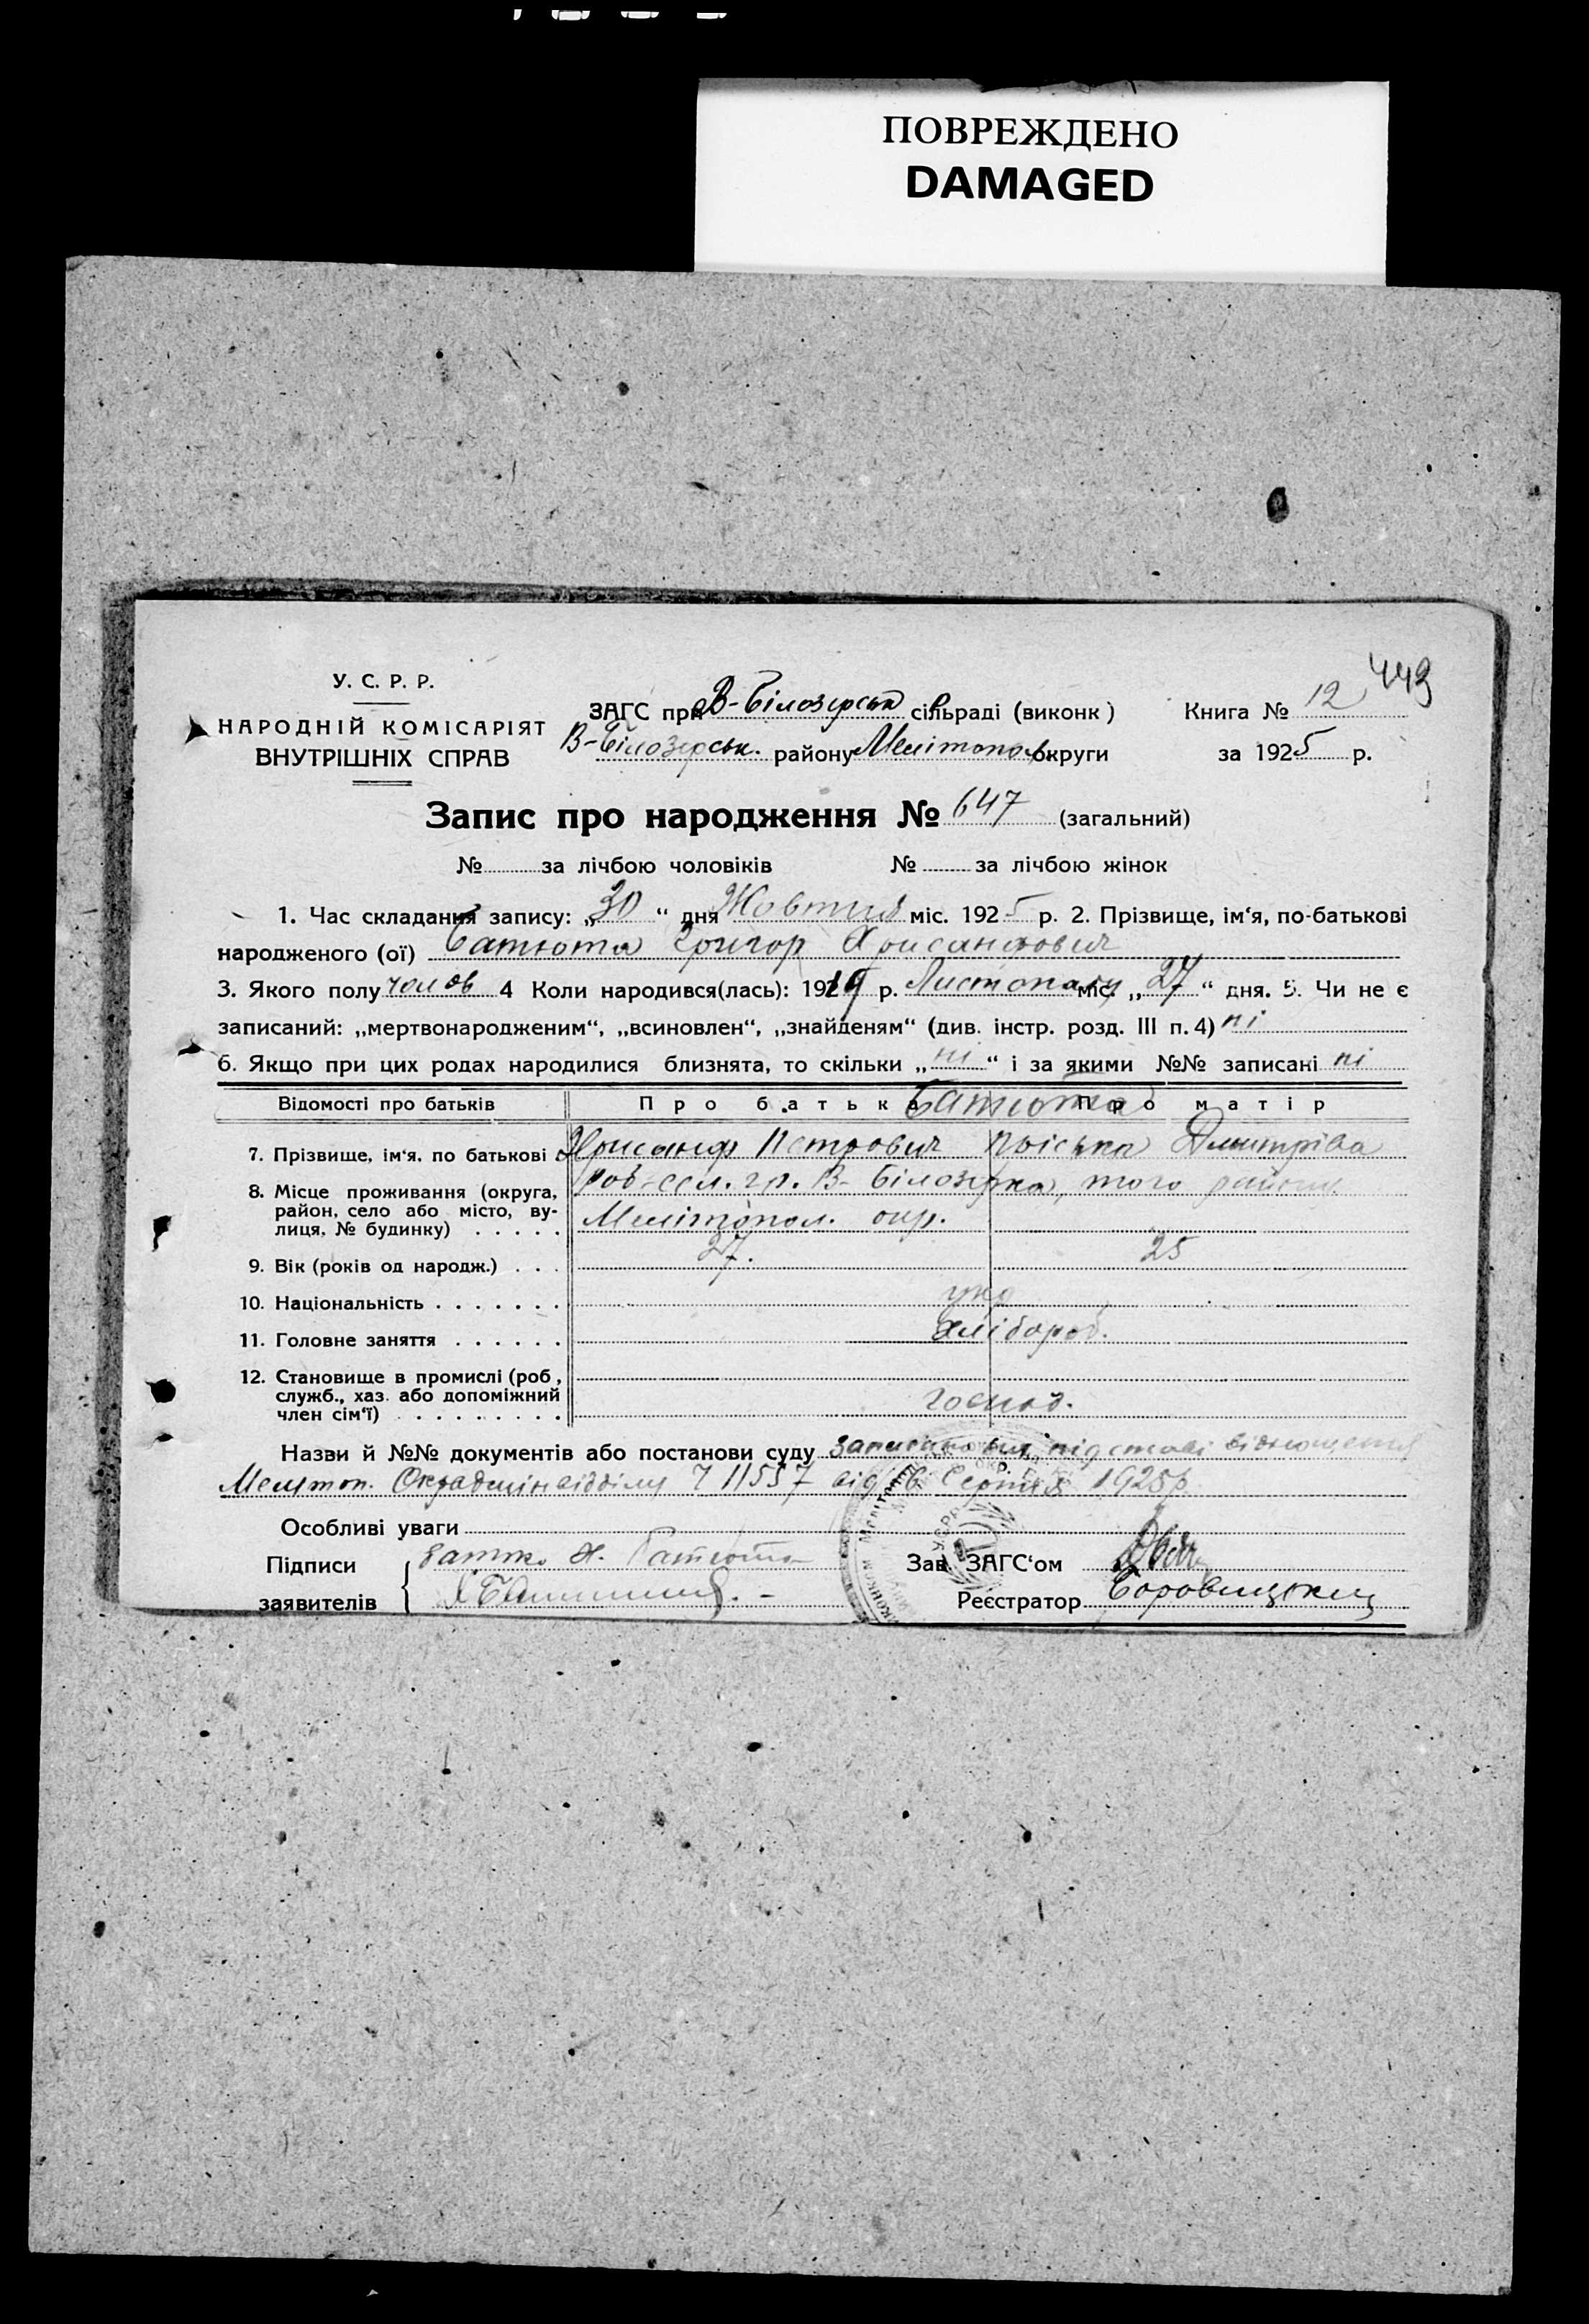 ПОВРЕЖДЕНО
DAMAGED
443
У. С. Р. Р.
НАРОДНІЙ КОМІСАРІЯТ
ВНУТРІШНІХ СПРАВ
ЗАГС при В-Білозерськ сільраді (виконк)
В-Білозерськ. району Мелітопол. округи
Книга № 12
за 1925 р.
Запис про народження № 647 (загальний)
№ за лічбою чоловіків № за лічбою жінок
1. Час складання запису: „30“ дня Жовтня міс. 1925 р. 2. Прізвище, ім‘я, по-батькові
народженого (ої) Батюта Григор Хрисанфович
3. Якого полу чолов 4 Коли народився(лась): 1919 р. Листопаду міс. „27“ дня. 5. Чи не є
записаний: „мертвонародженим“, „всиновлен“, „знайденям“ (див. інстр. розд. III п. 4) ні
6. Якщо при цих родах народилися близнята, то скільки „ні“ і за якими №№ записані ні
Відомості про батьків Про батька Про матір
Батюта
7. Прізвище, ім‘я, по батькові Хрисанф Петрович Дмитрівна
8. Місце проживання (округа, район, село або місто, вулиця, № будинку)
гр. В-Білозерка, того району
Мелітопол. окр.
9. Вік (років од народж.) 27. 25
10. Національність укр
11. Головне заняття хлібороб.
12. Становище в промислі (роб, служб., хаз. або допоміжний член сім‘ї) господ.
Назви й №№ документів або постанови суду записано на підставі відношення
Мелітоп. Окрадмінвідділу Ч 11557 від Серпня 1925р.
Особливі уваги
Підписи заявителів
батько Х. Батюта
Зав. ЗАГС‘ом
Реєстратор Боровицький